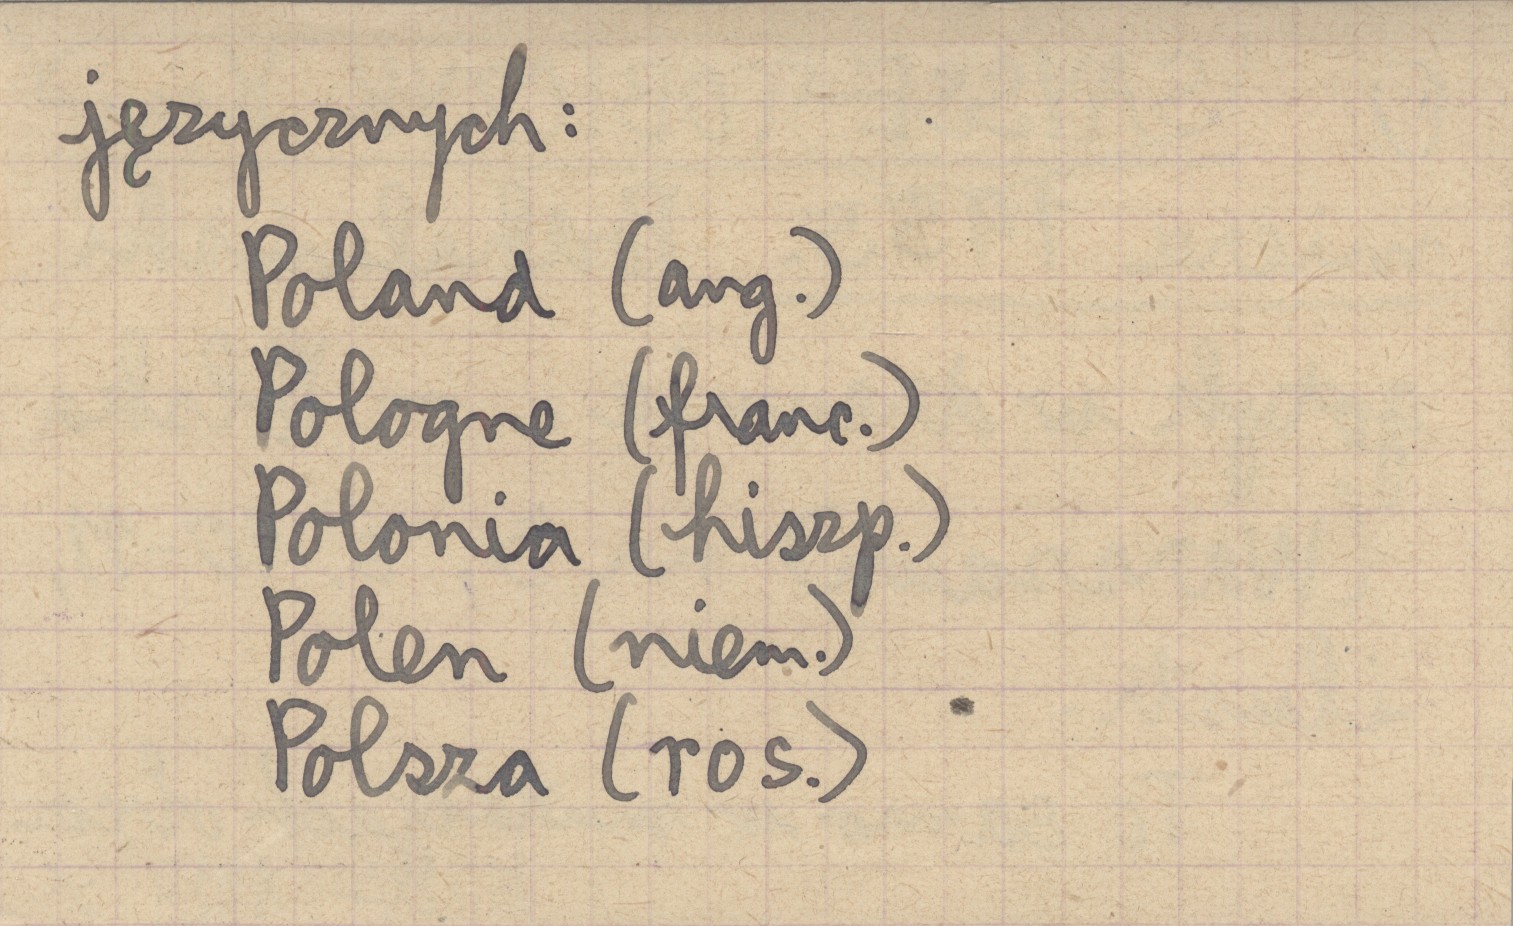 języcznych:
Poland (ang.)
Pologne (franc.)
Polonia (hiszp.)
Polen (niem.)
Polsza (ros.)